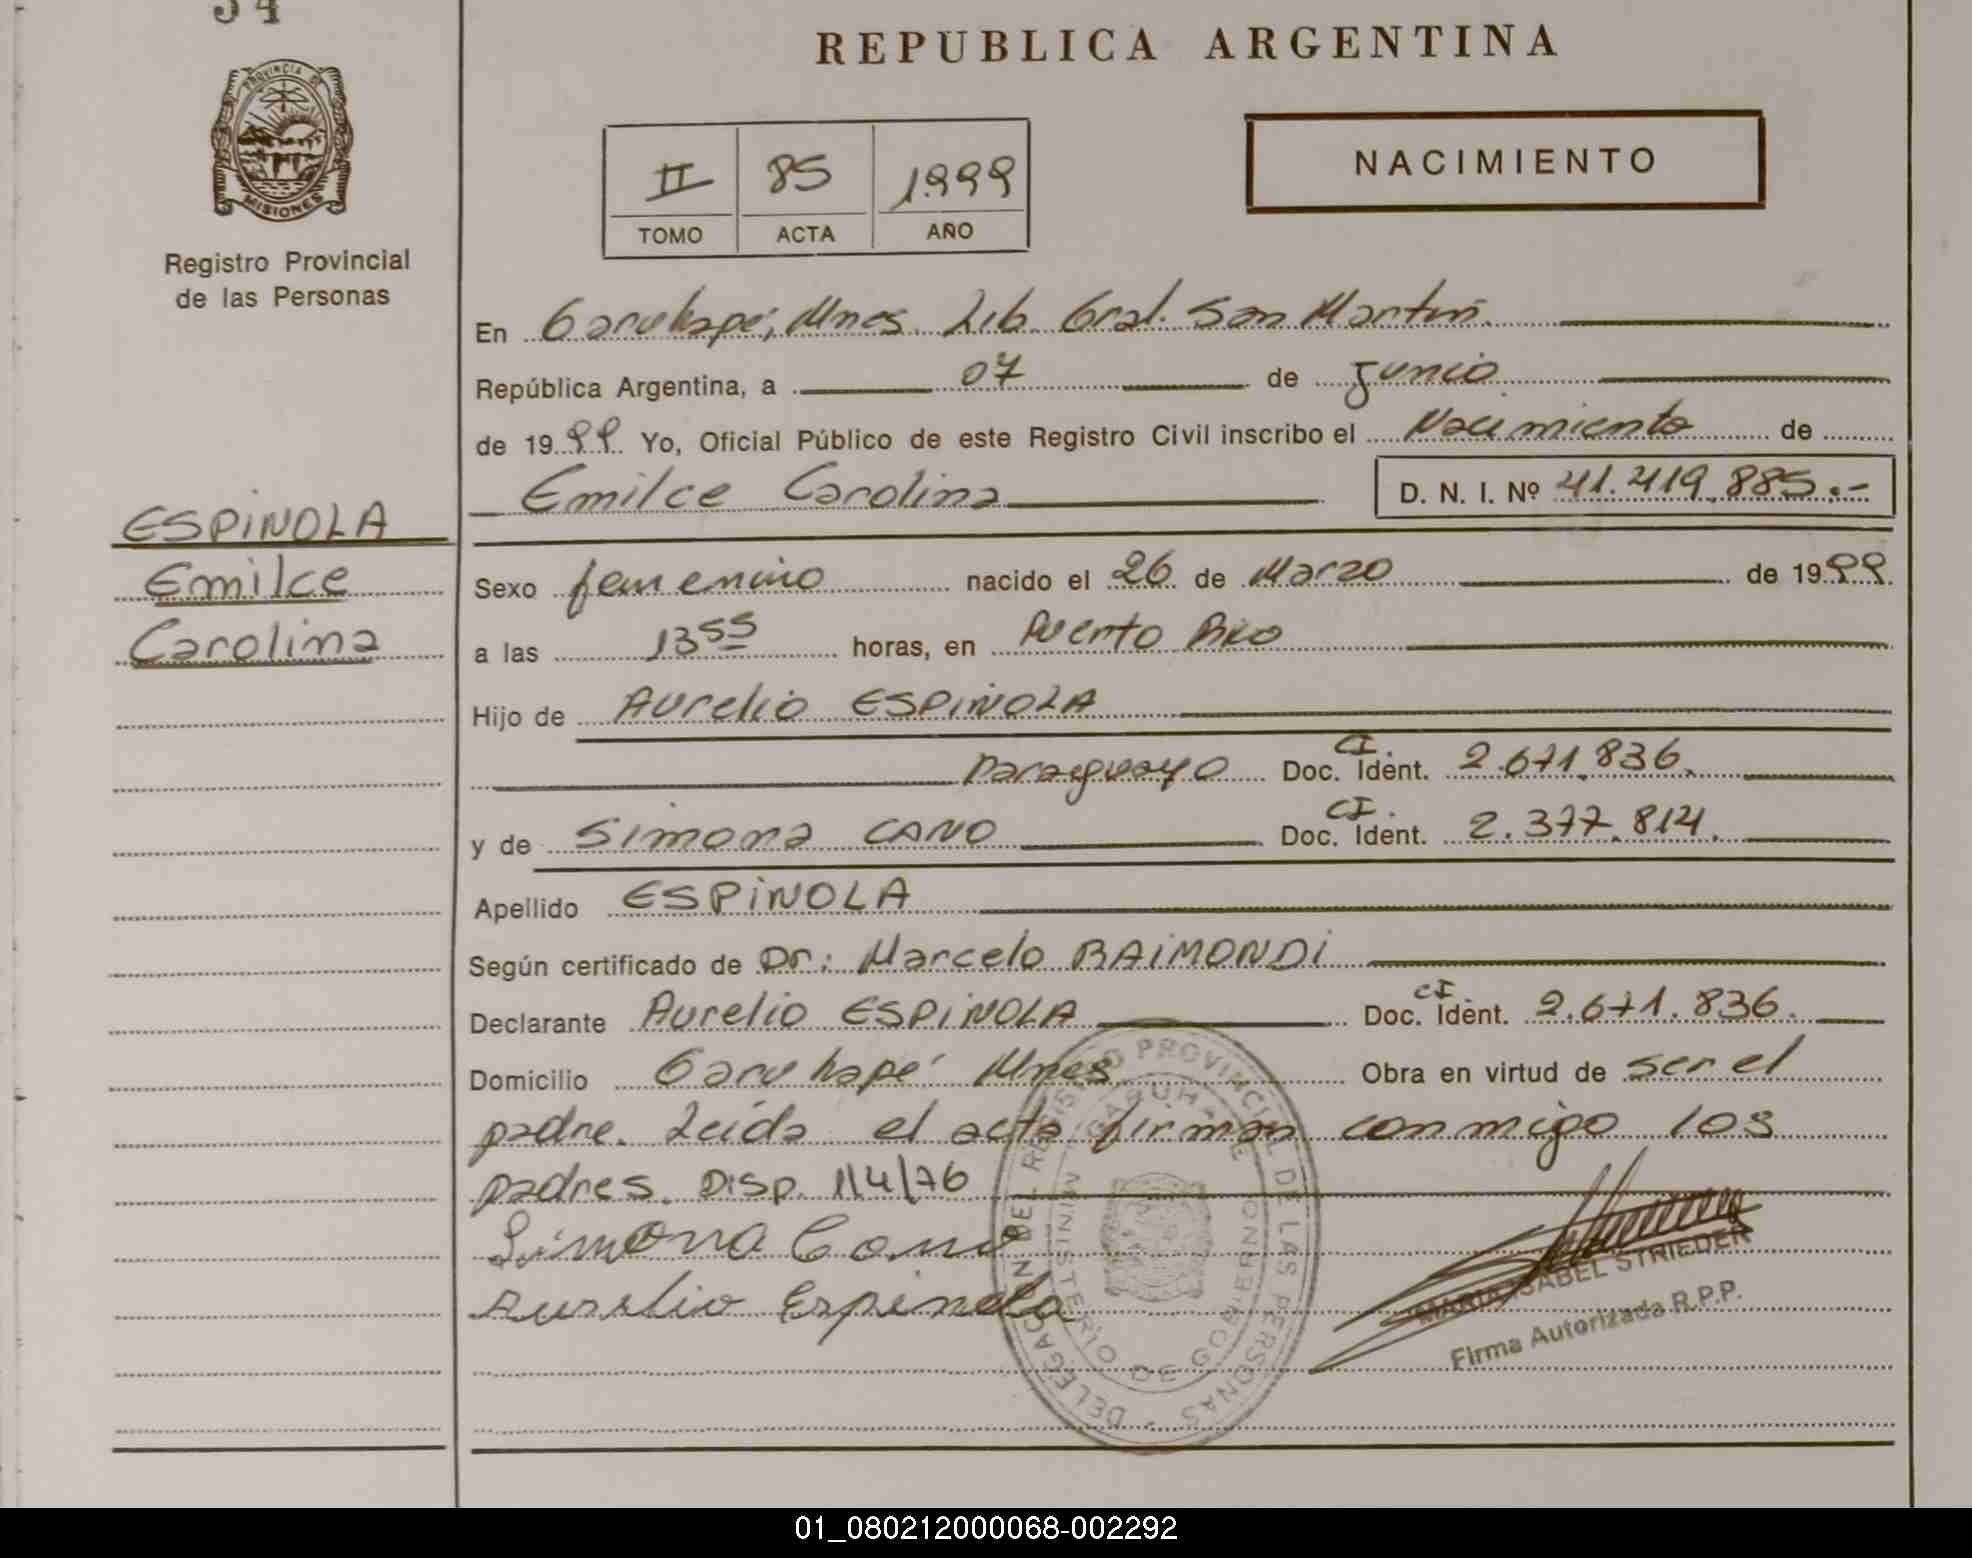 54
REPUBLICA ARGENTINA
PROVINCIA DE
MISIONES
Registro Provincial
de las Personas
II 85 1999
TOMO ACTA AÑO
NACIMIENTO
En Garuhapé, Mnes. Lib. Gral. San Martín.
República Argentina, a 07 de junio
de 1999. Yo, Oficial Público de este Registro Civil inscribo el Nacimiento de
Emilce Carolina D. N. I. Nº 41.419.885.-
ESPINOLA
Emilce
Carolina
Sexo femenino nacido el 26 de Marzo de 1999.
a las 13 55 horas, en Puerto Rico
Hijo de Aurelio ESPINOLA
Paraguayo Doc. Ident. CI. 2.671.836.
y de Simona CANO Doc. Ident. CI. 2.377.814.
Apellido ESPINOLA
Según certificado de Dr: Marcelo RAIMONDI
Declarante Aurelio ESPINOLA Doc. Ident. CI 2.671.836.
Domicilio Garuhapé Mnes Obra en virtud de ser el
padre. Leída el acta firman conmigo los
padres. Disp. 114/76
Simona Cano
Aurelio Espinola
DELEGACION DEL REGISTRO PROVINCIAL DE LAS PERSONAS
GARUHAPE
MINISTERIO DE GOBIERNO
MARIA ISABEL STRIEDER
Firma Autorizada R.P.P.
01_080212000068-002292